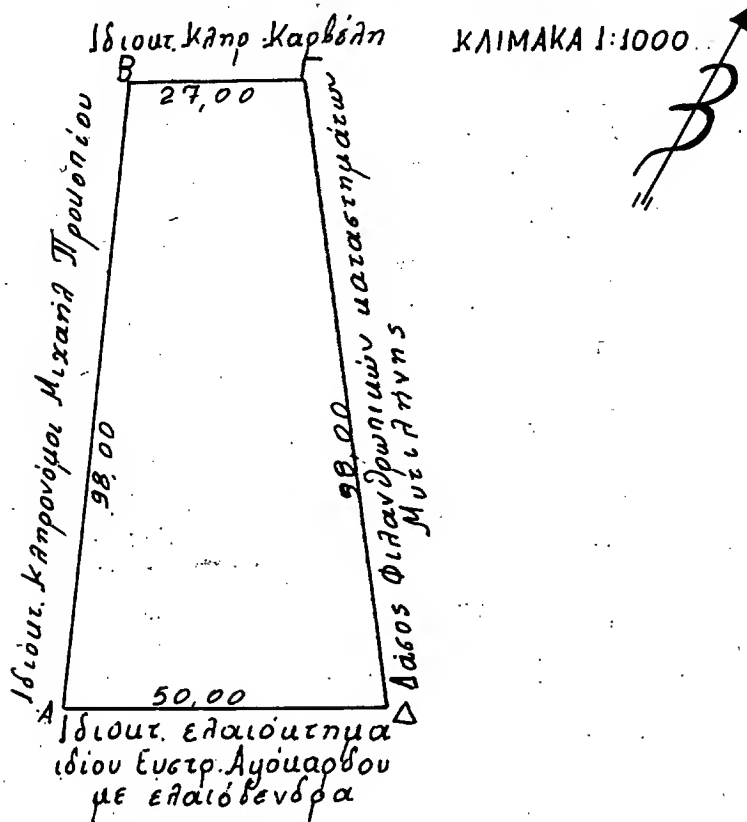 Ιδιοκτ. Κληρ. Καρβέλη
ΚΛΙΜΑΚΑ 1:1000
Β
Γ
27,00
Β
Ιδιόκτ. Κληρονόμοι Μιχαήλ Προκοπίου
98,00
98,00
Δάσος Φιλανθρωπικών καταστημάτων
Μυτιλήνης
Α
50,00
Δ
Ιδιοκτ. ελαιόκτημα
ιδίου Ευστρ. Αγόκαρδου
με ελαιόδενδρα